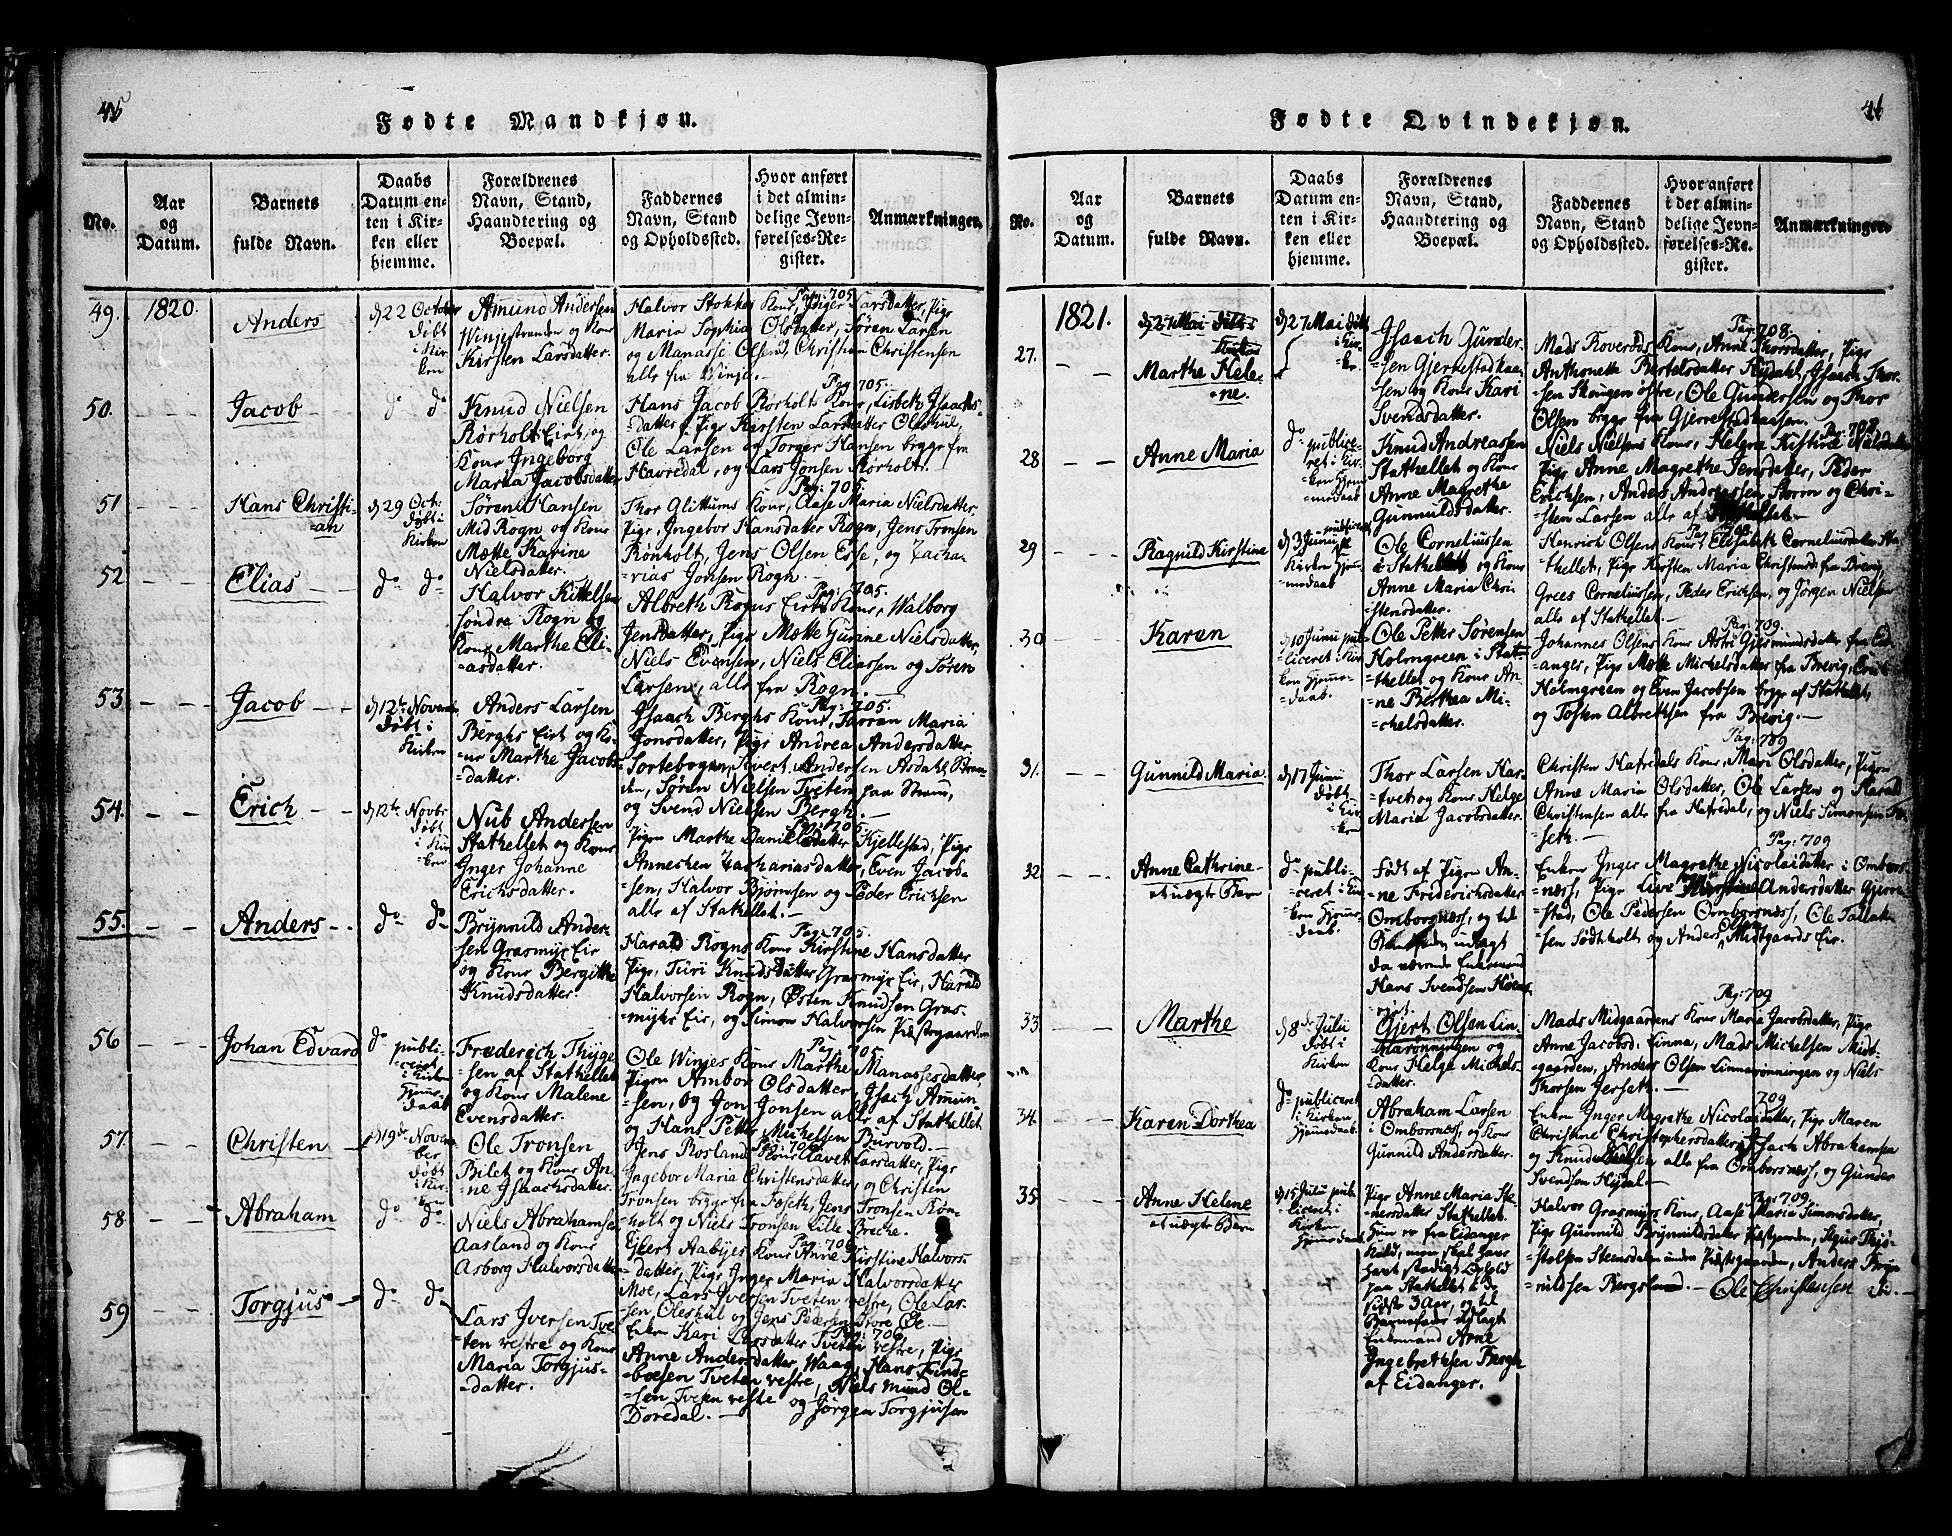 45
Fødte Mandkjøn.
No.
Aar
og
Datum.
Barnets
fulde Navn.
Daabs
Datum en-
ten i Kir-
ken eller
hjemme.
Forældrenes
Navn, Stand,
Haandtering og
Boepæl.
Faddernes
Navn, Stand
og Opholdssted.
Hvor anført
i det almin-
delige Jevn-
førelses-Re-
gister.
Anmærkninger.
49.
1820.
Anders
d 22 October
døbt
i Kir-
ken
Amund Andersen
Winjestranden og Kone
Kirsten Larsdatter.
Pag: 705
Halvor Stokkes Kone, Inger Larsdatter, Pige
Maria Sophia Olsdatter, Søren Larsen
og Manasse Olsen, Christian Christensen
alle fra Winje.
50.
Jacob
do do
Knud Nielsen
Rørholt Eir: og
Kone Ingeborg
Maria Jacobsdatter
Pag: 705.
Hans Jacob Rørholts Kone, Lisbeth Isaachs-
datter, Pige Kirsten Larsdatter Oleskul,
Ole Larsen og Torger Hansen begge fra
Havredal, og Lars Jonsen Rørholt.
51
Hans Christi-
=an
d 29 Oct:
døbt i
Kirken
Søren Hansen
Mid Rogn og Kone
Mætte Karine
Nielsdatter.
Pag: 705.
Thor Glittums Kone, Aase Maria Nielsdatter,
Pige, Ingebor Hansdatter Rogn, Jens Tronsen
Rønholt, Jens Olsen Esse, og Zacha-
=rias Jonsen Rogn.
52
Elias
do do
Halvor Kittelsen
søndre Rogn og
Kone Marthe Eli-
=asdatter.
Pag: 705.
Albreth Rogns Eirs Kone, Walborg
Jensdatter, Pige Mætte Gunine Nielsdatter,
Niels Evensen, Niels Eliassen og Søren
Larsen, alle fra Rogn.
53
Jacob
d 12te Novemb
Døbt i
Kirken
Anders Larsen
Berghs Eir: og Ko-
ne Marthe Jacobs-
=datter.
Pag: 705.
Isaach Berghs Kone, Thoran Maria
Jonsdatter, Pige Andrea Andersdatter
Sortebogen, Sivert Andersen Asdahl
Søren Nielsen Tveten paa Strøm,
og Svend Nielsen Bergh.
54.
Erich
d 12te Novbr
døbt
i Kir
ken
Nub Andersen
Stathellet og Kone
Inger Johanne
Erichsdatter.
Pag: 705.
Pigen Marthe Danielsdatter Kjellestad, Pige
Annechen Zachariasdatter, Even Jacob-
=sen, Halvor Bjørnsen og Peder Erichsen
alle af Stathellet.
55.
Anders
do do
Brynnild Ander-
sen Grasmyr Eir
og Kone Bergitte
Knudsdatter.
Pag: 705.
Harald Rogns Kone Kirstine Hansdatter
Pige, Turi Knudsdatter Grasmyr Eir, Harald
Halvorsen Rogn, Østen Knudsen Gras-
myhr Eir, og Simon Halvorsen Præstegaarden
56
Johan Edvard
do publi-
ceret
i Kirken
Hjem-
daab
Frederich Thyge-
=sen af Stathellet
og Kone Malene
Evensdatter.
Pag: 705.
Ole Winjes Kone Marthe Manassesdatter,
Pigen Ambor Olsdatter, Isach Amun
=sen, og Jon Jonsen alle af Stathellet
og Hans Petter Michelsen Burvold.
57.
Christen
d 19de Novem
ber
døbt
i Kir-
ken
Ole Tronsen
Bilet og Kone An-
=ne Isaachsdatter.
Pag 706
Jens Rosland Kone Tavet Larsdatter, Pige
Ingebor Maria Christensdatter, og Christen
Tronsen begge fra Foseth, Jens Tronsen Røn-
=holt og Niels Tronsen Lille Breche.
58
Abraham
do do
Niels Abrahamsen
Aasland og Kone
Asborg Halvorsdatter
Pag: 706
Ejlert Aabyes Kone Anne Kirstine Halvors-
=datter, Pige Inger Maria Halvorsdatter
Moe, Lars Iversen Tveten vestre, Ole Lar-
sen Oleskul og Jens Pedersen Trore Ee.
59
Torgjus
do do
Lars Iversen Tve-
ten vestre og Kone
Maria Torgjus-
=datter.
Pag: 706
Enken Kari Larsdatter Tveten vestre, Pige
Anne Andersdatter, Waag, Hans Find-
boesen Tveten vestre, Niels Mund Ol-
=sen Tveten vestre og Jørgen Torgjusen
Doredal.
46
Fødte Qvindekjøn.
No.
Aar
og
Datum.
Barnets
fulde Navn.
Daabs
Datum en-
ten i Kir-
ken eller
hjemme.
Forældrenes
Navn, Stand,
Haandtering og
Boepæl.
Faddernes
Navn, Stand
og Opholdssted.
Hvor anført
i det almin-
delige Jevn-
førelses-Re-
gister.
Anmærkninger.
1821.
27.
Marthe Hele-
=ne.
d 27 Mai døbt
i Kir-
ken
Isaach Gunder-
=sen Gjerkestadkaa-
sen og Kone Kari
Svendsdatter.
Pag: 708.
Mads Roverøds Kone, Anne Thorsdatter, Pige
Anthonette Bertelsdatter Hydahl, Isaach Thor-
=sen Skougen østre, Ole Gundersen og Thor
Olsen begge fra Gjerrestadkaasen.
28
Anne Maria
do publice-
ret i Kir-
=ken Hjem-
medaab
Knud Andreassen
Stathellet og Kone
Anne Magrethe
Gunnuldsdatter.
Pag: 708
Niels Nielsens Kone, Helgne Kirstine Nielsdatter
Pige Anne Magrethe Jensdatter, Peder
Erichsen, Anders Andreassen Storm og Chri-
=sten Larsen alle af Stathellet
29
Ragnild Kirstine
d 3 Junii publiceret
i
Kirken Hjem-
=medaab
Ole Corneliussen
i Stathellet og Kone
Anne Maria Chri-
=stensdatter.
Pag: 708
Henrich Olsens Kone Elisabeth Corneliusdatter Sta
=thellet, Pige Kirsten Maria Christensd: fra Brevig,
Grees Corneliussen, Peder Erichsen, og Jørgen Nielsen
alle af Stathellet.
30
Karen
d 10 Junii pub-
=liceret i Kir-
ken Hjemme-
=daab.
Ole Petter Sørensen
Holmgreen i Stat-
thellet og Kone An-
=ne Berthea Mi-
chelsdatter.
Pag: 709.
Johannes Olsens Kone Astri Gjermundsdatter fra Eid
=anger, Pige Mætte Michelsdatter fra Brevig, Erich
Holmgreen og Even Jacobsen begge af Stathellet,
og Tosten Albrethsen fra Brevig.
31.
Gunnild Maria.
d 17 Junii
Døbt
i Kir-
ken
Thor Larsen Har-
tvet og Kone Helge
Maria Jacobsdatter.
Pag: 709
Christen Hafredals Kone, Mari Olsdatter, Pigen
Anne Maria Olsdatter, Ole Larsen og Harald
Christensen alle fra Hafredal, og Niels Simonsen Fo-
seth.
32
Anne Cathrine
et uægte Barn
do publi-
ceret i Kir-
ken Hjem-
daab.
Født af Pigen An-
ne Friderichsdatter
Omborsnæss, og til
Barnefader udlagt
da værende Enkemand
Hans Svendsen
Pag: 709
Enken Inger Magrethe Nicolaidatter i Ombors-
næss, Pige Live Andersdatter Gjerre-
stad, Ole Pedersen Omborsnæss, Ole Tallak-
sen Södtholt og Anders Olsen Midtgaards Eir.
33.
Marthe
d 8de Julii
døbt i
Kirken
Gjert Olsen Lin-
narønningen og
Kone Helge Michels-
datter.
Pag: 709
Mads Midgaardens Kone Maria Jacobsdatter, Pige
Anne Jacobsd. Linna, Mads Michelsen Midt-
=gaarden, Anders Olsen Linnarønningen og Niels
Thorsen Gersøt.
34.
Karen Dorthea
do publiceret
i Kirken
Hjemmedaab.
Abraham Larsen
i Omborsnæss, og Kone
Gunnild Andersdatter.
709
Enken Inger Magrethe Nicolaidatter, Pige Maren
Christine Christophersdatter, Isach Abrahamsen
og Knud Larsen alle fra Omborsnæss, og Gunder
Svendsen Hydal.
35
Anne Helene
et uægte Barn
d 15 Julii pub-
liceret i
Kirken
Hjemmedaab
Pige Anne Maria Ste-
nersdatter Stathellet.
Hun er fra Eidanger
Kald, men skal have
havt stadigt Ophold
paa Stathellet i de
sidste 3 Aar, og til
Barnefader udlagt
Enkemand Arne
Ingebrethsen Bergh
af Eidanger.
Pag: 709.
Halvor Grasmyrs Kone, Aase Maria Simonsdatter,
Pige Gunnild Brynnildsdatter Præstegaarden,
Anders Bryn
=nildsen Bergsland. — Ole Christensen